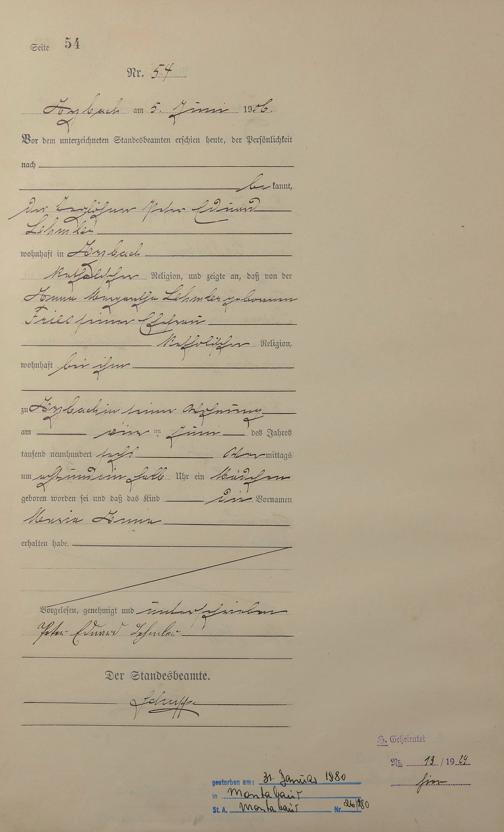 Seite 54
Nr. 54
am 5. Juni 1906.
Vor dem unterzeichneten Standesbeamten erschien heute, der Persönlichkeit
nach
bekannt,
der Peter Eduard
wohnhaft in
katholischer Religion, und zeigte an, daß von der
Anna Lehmler geborenen
Fries seiner Ehefrau
katholischer Religion,
wohnhaft bei ihm
zu in seiner Wohnung
am vier ten Juni des Jahres
tausend neunhundert sechs Vormittags
um acht und ein halb Uhr ein Mädchen
geboren worden sei und daß das Kind die Vornamen
Maria Anna
erhalten habe.
Vorgelesen, genehmigt und unterschrieben
Peter Eduard Lehmler
Der Standesbeamte.
gestorben am: 31. Januar 1980
in Montabaur
St. A. Montabaur Nr. 26/80
Nr. 13 / 19
hier